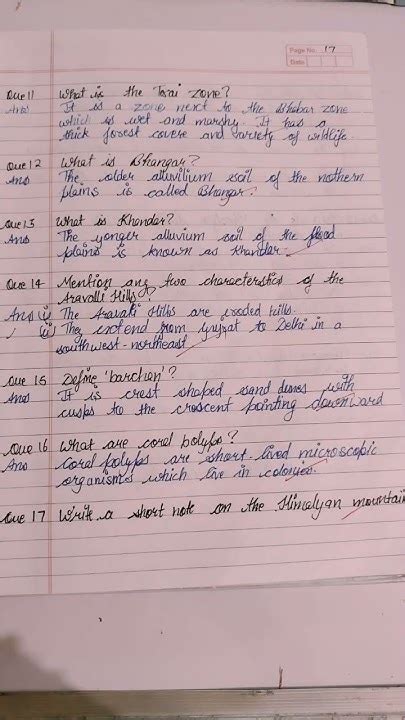 Page No. 17
Date
Que 11 What is the Tarai zone?
Ans It is a zone next to the Bhabar zone
which is wet and marshy. It has a
thick forest cover and variety of wildlife.
Que 12 What is Bhangar?
Ans The older alluvilium soil of the nothern
plains is called Bhangar.
Que 13 What is Khandar?
Ans The yonger alluvium soil of the flood
plains is known as Khandar.
Que 14 Mention any two characteristics of the
Aravalle Hills?
Ans i) The Aravali Hills are eroded hills.
(ii) They extend from gujrat to Delhi in a
southwest-northeast
Que 15 Define 'barchan'?
Ans It is crest shaped sand dunes with
cusps to the crescent pointing downward
Que 16 What are corel polyps?
Ans Corel polyps are short-lived microscopic
organisms which live in colonies.
Que 17 Write a short note on the Himalyan mountain